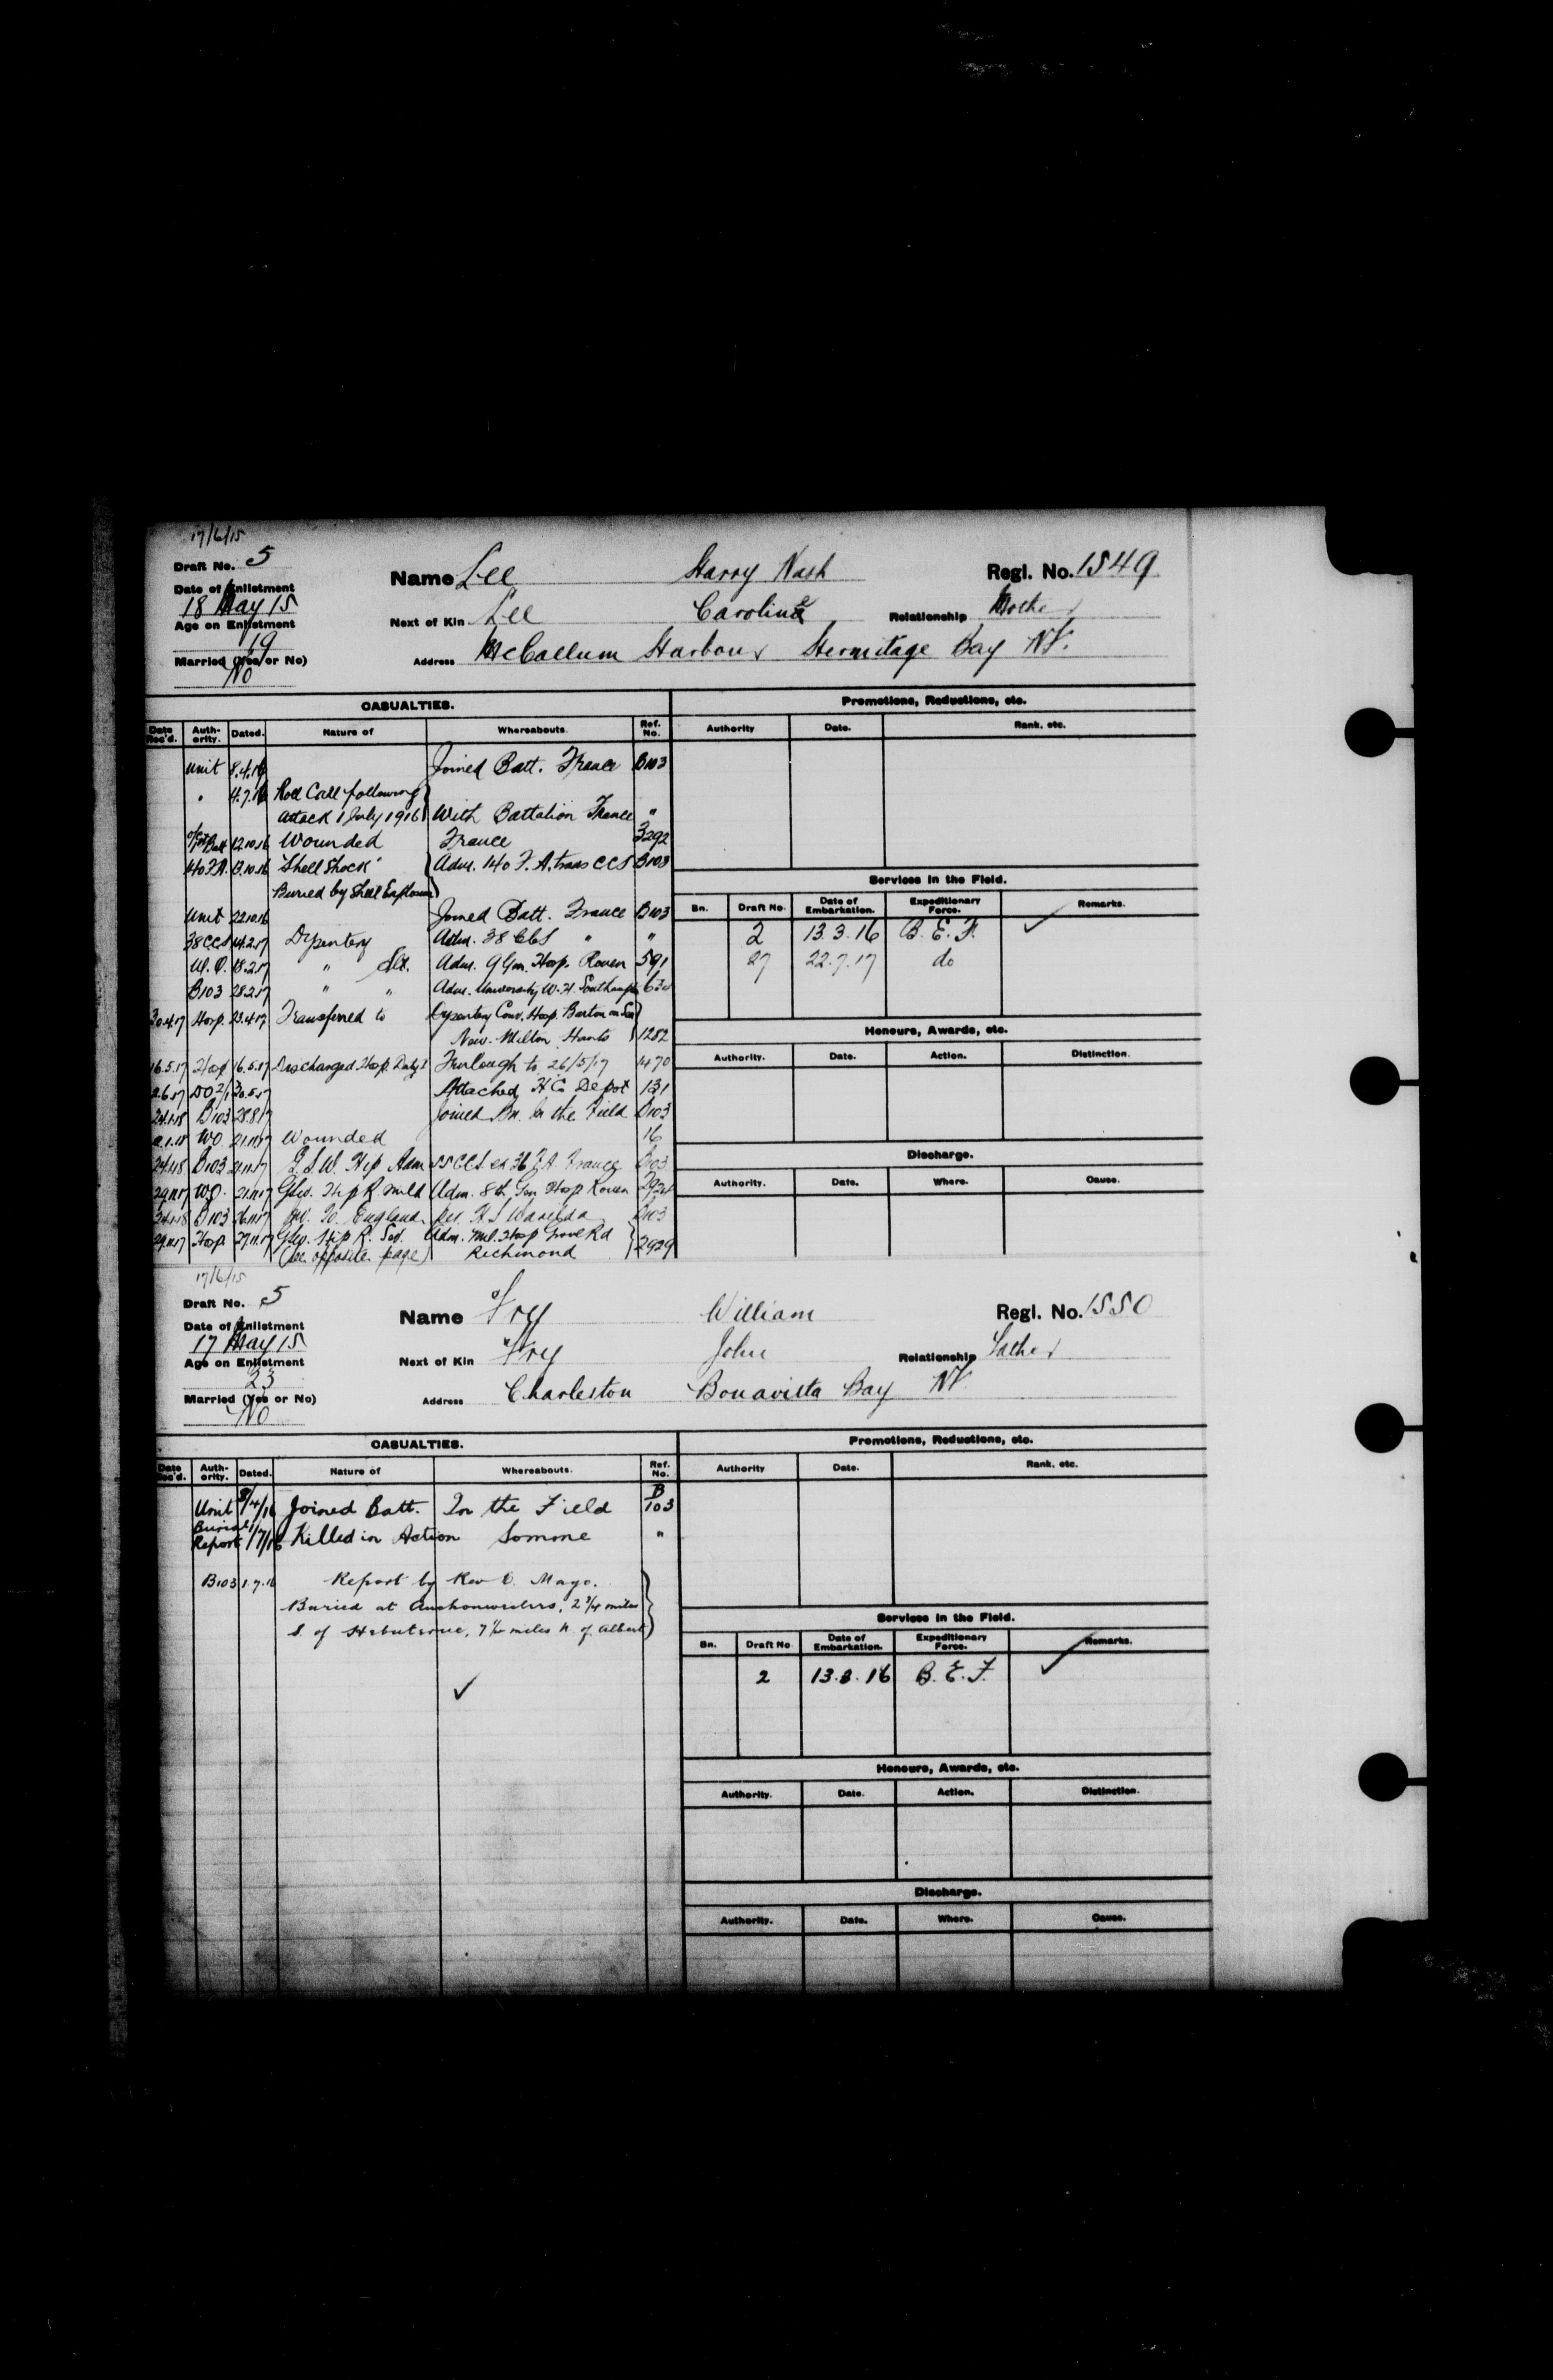 17/6/15
Draft No. 5
Name Lee Harry Nash Regl. No. 1549
Date of Enlistment
18 May 15
Next of Kin Lee Caroline Relationship Mother
Age on Enlistment
19
Married (Yes or No)
No
Address McCallum Harbour Hermitage Bay Nf.
CASUALTIES.
Promotions, Reductions, etc.
Date Rec'd. Auth-ority. Dated. Nature of Whereabouts. Ref. No.
Authority Date. Rank, etc.
Unit 8.4.16 Joined Batt. France B103
" 4.7.16 Roll Call following
attack 1 July 1916 With Battalion France "
12.10.16 Wounded France 3292
140 F.A. 13.10.16 "Shell Shock" Adm. 140 F.A. trans CCS B103
Buried by Shell Explosion
Unit 22.10.16 Joined Batt. France B103
38 CCS 14.2.17 Dysentery Adm. 38 CCS " "
W.O. 18.2.17 " Slt. Adm. 9 Gen. Hosp. Rouen 591
B103 28.2.17 " " Adm. University W.H. Southampton
30.4.17 Hosp. 23.4.17 Transferred to Dysentery Conv. Hosp. Barton on Sea
New Milton Hants 1282
16.5.17 Hosp 16.5.17 Discharged Hosp. Furlough to 26/5/17 1470
2.6.17 DO 2/1 30.5.17 Attached H.Q. Depot 131
24.1.18 B103 28.8.17 Joined Bn. In the Field B103
2.1.18 WO. 21.11.17 Wounded 16
24.1.18 B103 21.11.17 G.S.W. Hip Adm 55 CCS ex 36 F.A. France B103
29.11.17 WO. 21.11.17 GSW. Hip R. Mild Adm. 8th Gen Hosp Rouen
24.1.18 B103 26.11.17 Inv. to England per H.S. Warilda B103
29.11.17 Hosp 27.11.17 GSW. Hip R. Sev. Adm. Mil. Hosp Grove Rd
(see opposite page) Richmond 2929
Services in the Field.
Bn. Draft No. Date of Embarkation. Expeditionary Force. Remarks.
2 13.3.16 B.E.F. ✓
27 22.7.17 do
Honours, Awards, etc.
Authority. Date. Action. Distinction.
Discharge.
Authority. Date. Where. Cause.
17/6/15
Draft No. 5
Name Fry William Regl. No. 1550
Date of Enlistment
17 May 15
Next of Kin Fry John Relationship Father
Age on Enlistment
23
Married (Yes or No)
No
Address Charleston Bonavista Bay Nf.
CASUALTIES.
Promotions, Reductions, etc.
Date Rec'd. Auth-ority. Dated. Nature of Whereabouts. Ref. No.
Authority Date. Rank, etc.
Unit 8/4/16 Joined Batt. In the Field B 103
Burial Report 1/7/16 Killed in Action Somme "
B103 1.7.16 Report by Rev. E. Mayo.
Buried at Auchonvillers, 2 3/4 miles
S. of Hebuterne, 7 1/2 miles N. of Albert
✓
Services in the Field.
Bn. Draft No Date of Embarkation. Expeditionary Force. Remarks.
2 13.3.16 B.E.F. ✓
Honours, Awards, etc.
Authority. Date. Action. Distinction.
Discharge.
Authority. Date. Where. Cause.